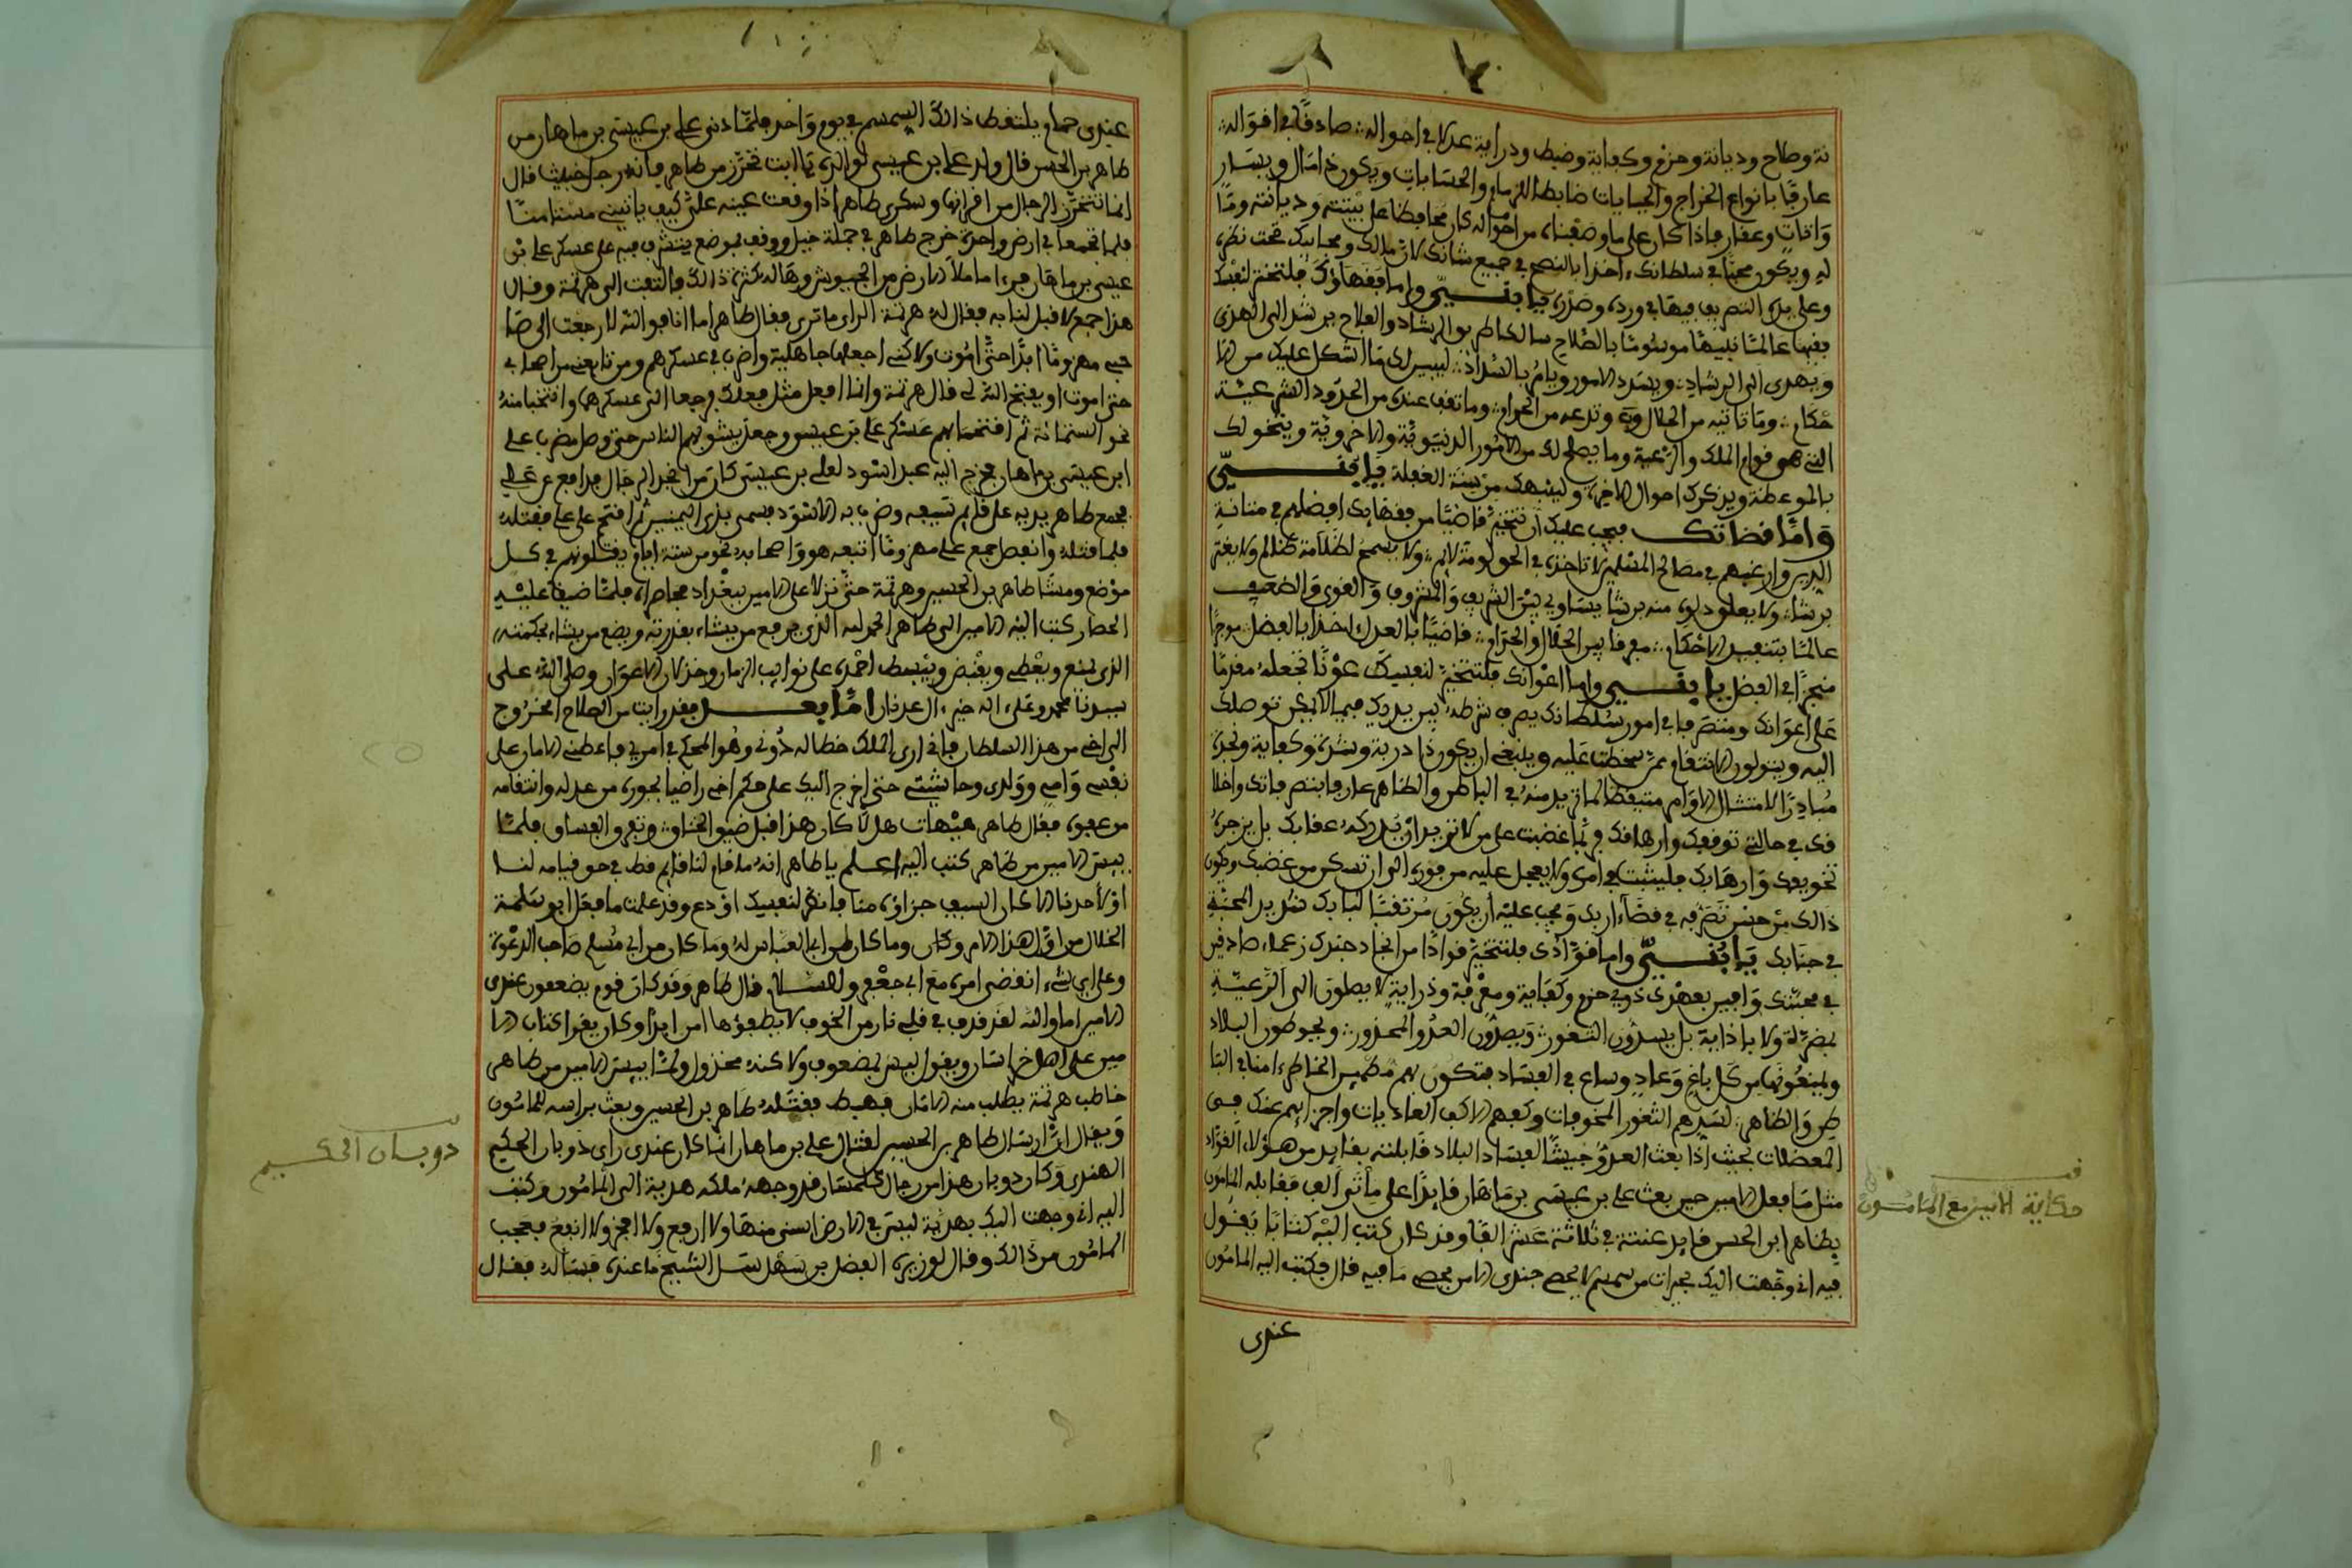 نة وصلاح وديانة وحزم وكفاية وضبط ودراية عدلا في احواله صادقا في اقواله
عارفا بانواع الخراج والجبايات ضابطا للزمام والحسابات ويكون ذا مال ويسار
واثاث وعقار فاذا كان على ما وصفناه من احواله كان محافظا على بيته وديانته وما
له ويكون محبا في سلطانك اخذا بالنصح في جميع شانك لان مالك ومجابيك تحت نظره
وعلى يده التصريف فيها في ورده وصدره يا بني واما فقهاؤك فلتتخذ لنفسك
فقيها عالما نبيها موسوما بالصلاح سالكا طريق الرشاد والفلاح يرشد الى الهدى
ويهدي الى الرشاد ويسدد الامور ويامر بالسداد ليبين لك ما اشكل عليك من الا
حكام وما تاتيه من الحلال وتدعه من الحرام وما تقف عنده من الحدود الشرعية
التي هو قوام الملك والرعية وما يصلح لك من الامور الدنيوية والاخروية ويتخولك
بالموعظة ويذكرك احوال الاخرة ولينبهك من سنة الغفلة يا بني
واما قضاتك فيجب عليك ان تتخذ قاضيا من فقهائك افضلهم في متانة
الدين وارغبهم في مصالح المسلمين لا تاخذه في الحق لومة لائم ولا يسمح لظلامة ظالم ولا يغتر
برشا ولا يعلق دلوه منه برشا يساوي بين الشريف والمشروف والقوي والضعيف
عالما بتنفيذ الاحكام مفرقا بين الحلال والحرام قاضيا بالعدل اخذا بالفضل موجزا
منجزا في الفصل يا بني واما اعوانك فلتتخذ لنفسك عونا تجعله مقدما
على اعوانك ومتصرفا في امور سلطانك يصرف شرطه بين يديك فيما لا يمكن توصلك
اليه ويتولون الانتقام ممن سخطت عليه وينبغي ان يكون ذا دربة وشدة وكفاية ونجدة
مبادرا لامتثال الاوامر متيقظا لما تريد منه في الباطن والظاهر عارفا بتصرفاتك واخلا
قك في حالتي توقفك وارهافك فربما غضبت على من لا تريد ان يدركه عقابك بل يزجره
تخويفك وارهابك فليتثبت في امره ولا يعجل عليه من فوره الى ان تسكن من غضبك ويكون
ذالك من حسن تصرفه في قضاء اربك ويجب عليه ان يكون مرتقبا لبابك شديد المحبة
في جنابك يا بني واما قوادك فلتتخذ قوادا من انجاد جندك زعماء صادقين
في محبتك وافين بعهدك ذوي حزم وكفاية ومعرفة ودراية لا يصلون الى الرعية
بمضرة ولا باذاية بل يسدون الثغور ويصدون العدو المحذور ويحوطون البلاد
ويمنعونها من كل باغ وعاد وساع في الفساد فتكون بهم مطمئن الخاطر امنا في البا
طن والظاهر لسدهم الثغور المخوفات وكفهم الاكف العاديات واجزائهم عنك في
المعضلات بحيث اذا بعث العدو جيشا لفساد البلاد قابلته بقائد من هؤلاء القواد
مثل ما فعل الامين حين بعث علي بن عيسى بن ماهان قائدا على مائتي الف فقابله المامون
بطاهر ابن الحسن قائد عنه في ثلاثة عشر الفا وقد كان كتب اليه كتابا يقول
فيه اني وجهت اليك بحبات من سمسم لا يحصى جندي الا من يحصي ما فيه قال فكتب اليه المامون
عندي
حكاية الامين مع المامون
عندي حمام يلتقط ذالك السمسم في يوم واحد فلما دنى علي بن عيسى بن ماهان من
طاهر بن الحسن قال ولد علي بن عيسى لوالده يا ابت تحرز من طاهر فانه رجل خبيث قال
انما تتحرز الرجال من اقرانها وسكرى طاهر اذا وقعت عينه علي كيف ياتيني مستامنا
فلما اجتمعا في ارض واحدة خرج طاهر في جملة خيل ووقف بموضع يشرف فيه على عسكر علي بن
عيسى بن ماهان فرءا ما ملأ الارض من الجيوش وهاله كثرة ذالك فالتفت الى هرثمة وقال
هذا جمع لا قبل لنا به فقال له هرثمة الراي ما ترى فقال طاهر اما انا فوالله لا رجعت الى صا
حبي مهزوما ابدا حتى اموت ولاكني اجعلها جاهلية واضرب في عسكرهم ومن تابعني من اصحابي
حتى اموت او يفتح الله لي قال هرثمة وانا افعل مثل فعلك فرجعا الى عسكرهما وانتخبا منه
نحو الستمائة ثم اقتحما بهم عسكر علي بن عيسى وجعل يشق بهم الناس حتى وصل مضرب علي
ابن عيسى بن ماهان فخرج اليه عبد اسود لعلي بن عيسى كان من انجد الرجال يدافع عن علي
فجمع طاهر يديه على قائم سيفه وضرب به الاسود فسمي بذي اليمينين ثم اقتحم على علي فقتله
فلما قتله وانفصل جمع علي مهزوما اتبعه هو واصحابه نحو من ستة ايام يقتلونهم في كل
موضع ومشا طاهر بن الحسين وهرثمة حتى نزلا على الامين ببغداد محاصراه فلما ضيقا عليه
الحصار كتب اليه الامين الى طاهر الحمد لله الذي يرفع من يشاء بقدرته ويضع من يشاء بحكمته
الذي يمنع ويعطي ويقبض ويبسط احمده على نوايب الزمان وخذلان الاعوان وصلى الله على
سيدنا محمد وعلى اله خير ال عدنان اما بعد فقد رايت من الصلاح الخروج
الى اخي من هذا السلطان فاني ارى الملك حظا له دوني وهو المحكم في امري فاعطني الامان على
نفسي وامي وولدي وحاشيتي حتى اخرج اليك على حكم اخي راضيا بجوره من عدله وانتقامه
من عفوه فقال طاهر هيهات هلا كان هذا قبل ضيق الخناق وتفرق الفساق فلما
يئس الامين من طاهر كتب اليه اعلم يا طاهر انه ما قام لنا قائم قط في حق قيامه لنا
او لاحدنا الا كان السيف جزاؤه منا فانظر لنفسك او دع وقد علمت ما فعل ابو سلمة
الخلال من اول هذا الامر وما كان من ابي العباس له وما كان من ابي مسلم صاحب الدعوة
وعلى اي شيء انقضى امره مع ابي جعفر والسلام قال طاهر وقد كان قوم يضعفون عندي
الامين اما والله لقد قذف في قلبي نارا من الخوف لا يطفؤها امن ابدا وكان يقرا كتاب الا
مين على اهل خراسان ويقول ليس بمضعوف ولاكنه مخذول ولما يئس الامين من طاهر
خاطب هرثمة يطلب منه الامان فهبط فقتله طاهر بن الحسين وبعث براسه للمامون
ويقال ان ارسال طاهر بن الحسين لقتال علي بن ماهان انما كان عندي راي ذوبان الحكيم
الهندي وكان ذوبان هذا من رجال كلمسان قد وجهه ملكه هدية الى المامون وكتب
اليه اني وجهت اليك بهدية ليس في الارض اسنى منها ولا ارفع ولا افخر ولا انفع فعجب
المامون من ذالك وقال لوزيره الفضل بن سهل سل الشيخ ما عنده فسأله فقال
ذوبان الحكيم